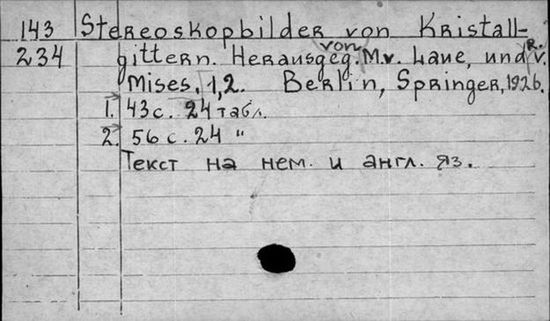 143 Stereoskopbilder von Kristall-
234 gittern. Herausgeg. von M.v. Laue, und R. v.
Mises. 1,2. Berlin, Springer, 1926.
1. 43 с. 24 табл.
2. 56 с. 24 "
Текст на нем. и англ. яз.